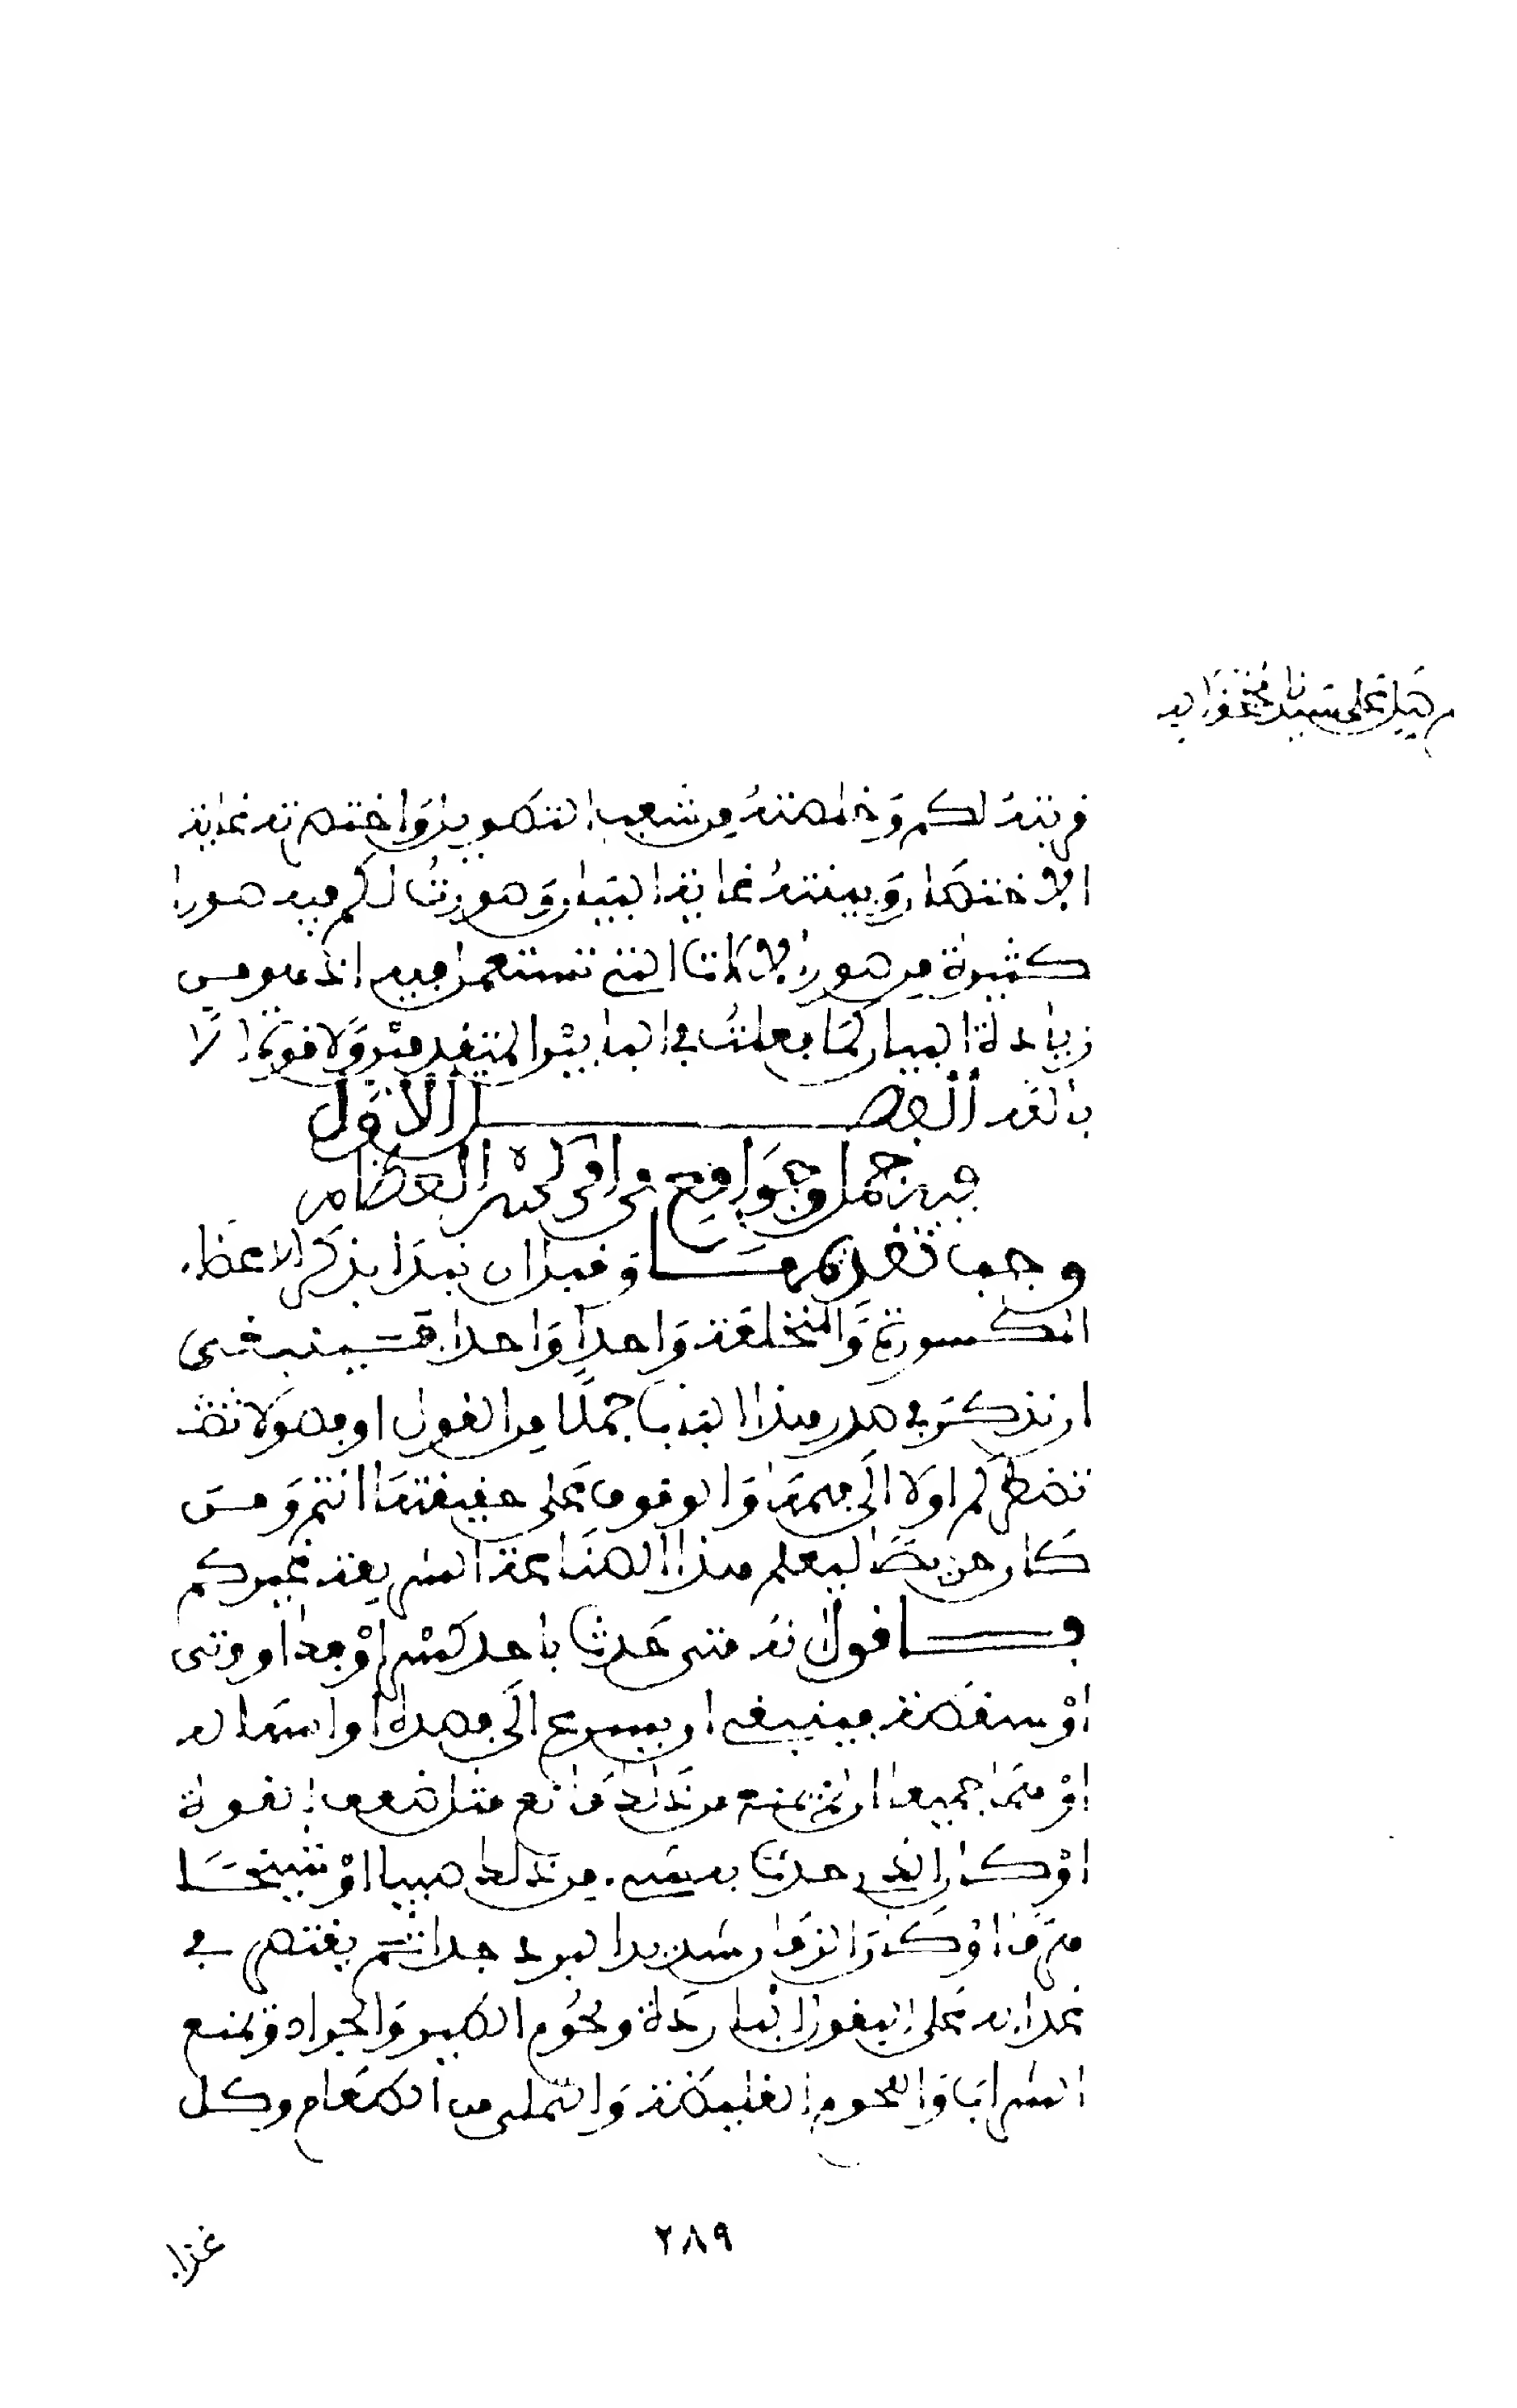 صل على سيدنا محمد وآله
قربته لكم وخلصته من شعب التطويل واختصرته غاية
الاختصار وبينته غاية البيان وصورت لكم فيه صورا
كثيرة من صور الالات التي تستعمل فيه اذ هو من
زيادة البيان كما فعلت في البابين المتقدمين ولا قوة الا
بالله الفصل الاول
فيه جمل وجوامع من امر كسر العظام
وجب تقديمها وقبل ان نبدا بذكر الاعضاء
المكسورة والمنخلعة واحدا واحدا فينبغي
ان نذكر في صدر هذا الباب جملا من القول وفصولا
تضطركم اولا الى فهمها والوقوف على حقيقتها انتم ومن
كان حريصا ليعلم هذا الصناعة الشريفة غيركم
فاقول انه متى حدث باحد كسر او فك او وثي
او سقطة فينبغي ان يسرع الى فصده او اسهاله
او هما جميعا ان لم يمنع من ذلك مانع مثل ضعف القوة
او كان الذي حدث به شيء من ذلك صبيا او شيخا
هرما او كان الزمان شديد البرد جدا ثم يقتصر في
غذائه على البقول الباردة ولحوم الطير والجراد ويمنع
الشراب واللحوم الغليظة والتملي من الطعام وكل
٢٨٩
غذا